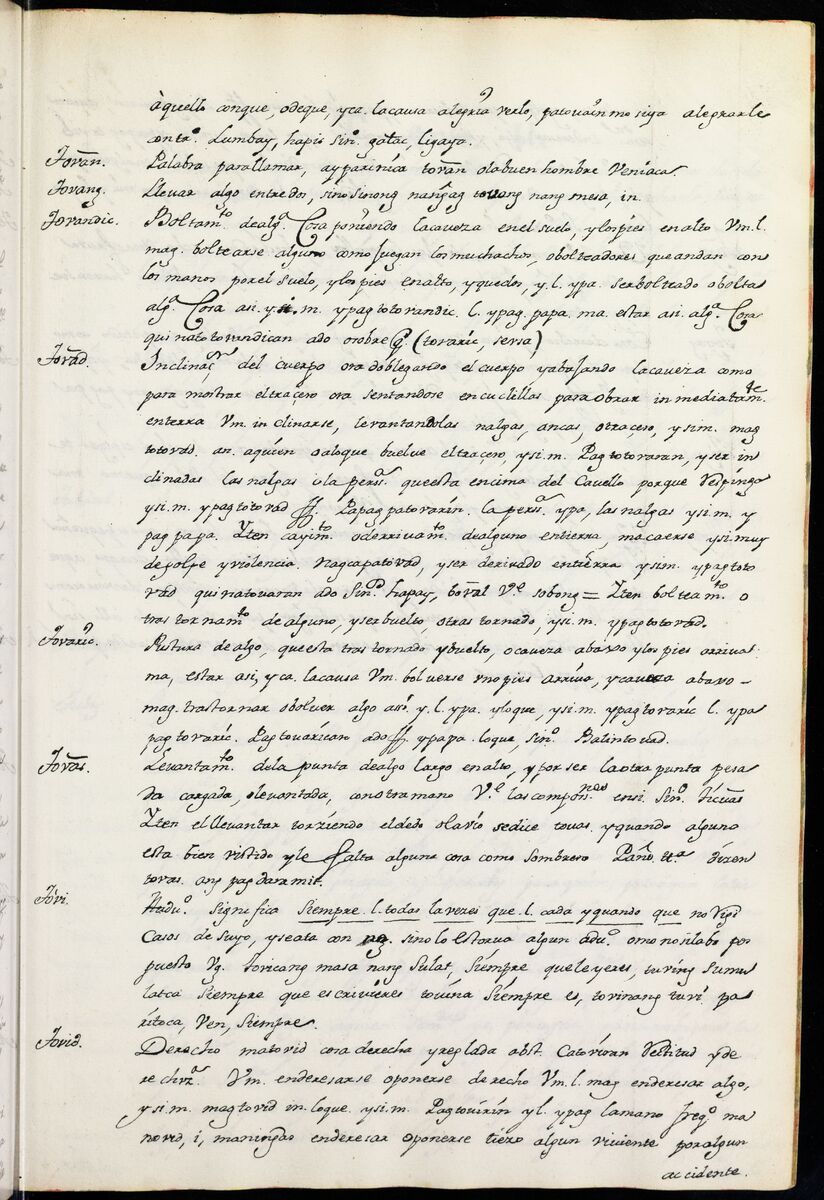 àquello conque, odeque, yca. lacausa alegria verlo, patovainmo siya alegrarle
contr.º Lumbay, hapis sin.º galac, ligaya.
Tovan. Palabra parallamar, ayparinica tovan olabuen hombre Veniaca.
Tovang. Llevar algo entredos, sinosinong nangag tovang nang mesa, in.
Tovandic. Boltam.to dealg.ª Cosa poniendo lacaveza enel suelo, ylospies enalto Vm. l.
mag. boltearse alguno como juegan losmuchachos, obolteadores queandan con
los manos porel suelo, ylospies enalto, yquedos, y. l. ypa. serbolteado obolta
alg.ª Cosa asi. ysi.m. ypagtotovandic. l. ypag. papa. ma. estar asi. alg.ª Cosa
quinatotovandican ado osobre (tovaric, sersa)
Tovad. Inclinaç.n del cuerpo oradoblegando el cuerpo yabajando lacaveza como
para mostrar eltraçero ora sentandose encuclillas paraobrar inmediatam.te
enterra Vm. inclinarse, levantandolas nalgas, ancas, otraçero, ysi.m. mag
totovad. an. aquien oaloque buelve eltraçero, ysi.m. Pagtotovaran, yser in
clinadas las nalgas i la pers.ª queesta encima del Cavallo porque Respinga
ysi.m. ypagtotovad Papagpatovarin. la pers.ª ypa, las nalgas ysi.m. y
pagpapa. Yten cayim.to oderrivam.to dealguno entierra, macaerse ysimuy
degolpe yviolencia. nagcapatovad, yser derivado entierra ysi.m. ypagtoto
vad quinatovaran ado Sin.º hapay, boval V.e sobong = Yten bolteam.to o
trastornam.to de alguno, yserbuelto, otrastornado, ysi.m. ypagtotovad.
Tovaric. Postura dealgo, queesta trastornado ybuelto, ocaveza abaxo ylospies arriva.
ma, estar asi, yca. lacausa Vm. bolverse unopies arriva, ycaveza abaxo –
mag. trastornar obolver algo asi. y. l. ypa. yloque, ysi.m. ypagtovaric l. ypa
pagtovaric. Pagtovarican ado ypapa. loque, sin.º Balintovad.
Tovas. Levantam.to dela punta dealgo largo enalto, ypor ser laotra punta pesa
da cargada, olevantada, conotramano V.e lascompon.nes ensi. Sin.º ticuas
Yten elllevantar torziendo eldedo olavio sedice tovas. yquando alguno
esta bien vistido yle falta alguna cosa como sombrero Paño tt.ª dizen
tovas. ang pagdaramit.
Tovi. Audu.º significa siempre. l. todas lavezes que. l. cada yquando que no Rige
Casos de suyo, yseata con ng. sinolo estorva algun adu.º omonosilabo pos
puesto Vg. Tovicang masa nang Sulat, siempre queleyeres, tuving Sumu
latca siempre que escrivieres tovina siempre es, tovinang tuvi pa
ritoca, Ven, siempre.
Tovid. Derecho matovid cosa derecha yreglada abst. Catoviran Rectitud yde
rechez.ª Vm. enderesarse oponerse derecho Vm. l. mag enderesar algo,
ysi.m. magtovid in. loque. ysi.m. Pagtovirin y l. ypag lamano freq.º ma
novid, i, maningas enderesar oponerse tiezo algun viviente poralgun
accidente.